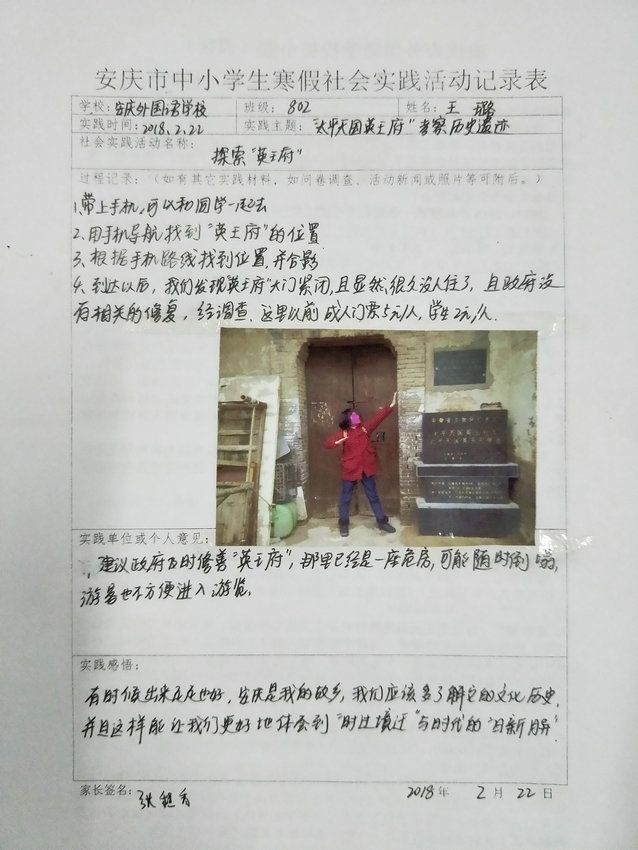 安庆市中小学生寒假社会实践活动记录表
学校：安庆外国语学校 班级：802 姓名：王璐
实践时间：2018.2.22 实践主题："太平天国英王府"考察历史遗迹
社会实践活动名称：
探索"英王府"
过程记录：（如有其它实践材料，如问卷调查、活动新闻或照片等可附后。）
1.带上手机，可以和同学一起去
2.用手机导航找到"英王府"的位置
3.根据手机路线找到位置，并合影
4.到达以后，我们发现"英王府"大门紧闭，且显然很久没人住了，且政府没
有相关的修复，经调查，这里以前成人门票5元/人，学生2元/人.
实践单位或个人意见：
建议政府及时修善"英王府"，那里已经是一座危房，可能随时倒塌，
游客也不方便进入游览.
实践感悟：
有时候出来走走也好，安庆是我的故乡，我们应该多了解它的文化历史，
并且这样能让我们更好地体会到"时过境迁"与时代的"日新月异"
家长签名： 2018年2月22日